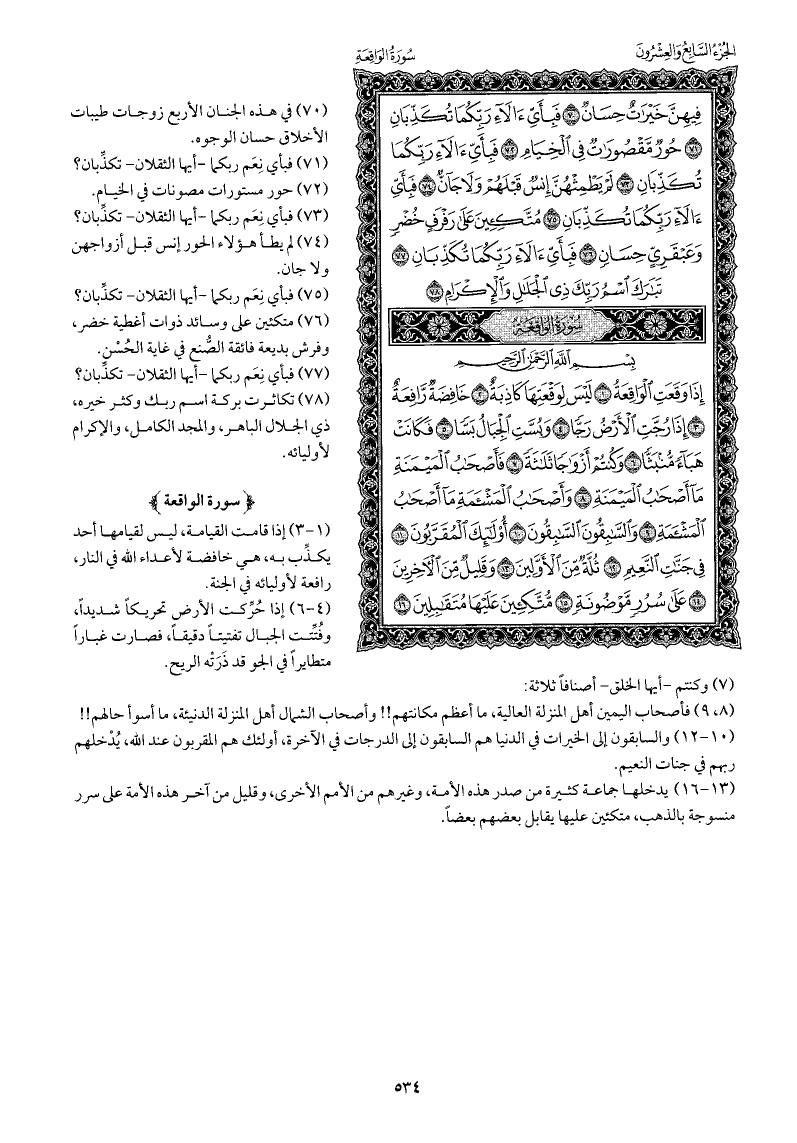 الجزء السابع والعشرون
سورة الواقعة
فِيهِنَّ خَيْرَٰتٌ حِسَانٌ ٧٠ فَبِأَيِّ ءَالَآءِ رَبِّكُمَا تُكَذِّبَانِ
٧١ حُورٌ مَّقْصُورَٰتٌ فِى ٱلْخِيَامِ ٧٢ فَبِأَيِّ ءَالَآءِ رَبِّكُمَا
تُكَذِّبَانِ ٧٣ لَمْ يَطْمِثْهُنَّ إِنسٌ قَبْلَهُمْ وَلَا جَآنٌّ ٧٤ فَبِأَيِّ
ءَالَآءِ رَبِّكُمَا تُكَذِّبَانِ ٧٥ مُتَّكِـِٔينَ عَلَىٰ رَفْرَفٍ خُضْرٍ
وَعَبْقَرِىٍّ حِسَانٍ ٧٦ فَبِأَيِّ ءَالَآءِ رَبِّكُمَا تُكَذِّبَانِ ٧٧
تَبَٰرَكَ ٱسْمُ رَبِّكَ ذِى ٱلْجَلَٰلِ وَٱلْإِكْرَامِ ٧٨
سُورَةُ الوَاقِعَةِ
بِسْمِ ٱللَّهِ ٱلرَّحْمَٰنِ ٱلرَّحِيمِ
إِذَا وَقَعَتِ ٱلْوَاقِعَةُ ١ لَيْسَ لِوَقْعَتِهَا كَاذِبَةٌ ٢ خَافِضَةٌ رَّافِعَةٌ
٣ إِذَا رُجَّتِ ٱلْأَرْضُ رَجًّا ٤ وَبُسَّتِ ٱلْجِبَالُ بَسًّا ٥ فَكَانَتْ
هَبَآءً مُّنۢبَثًّا ٦ وَكُنتُمْ أَزْوَٰجًا ثَلَٰثَةً ٧ فَأَصْحَٰبُ ٱلْمَيْمَنَةِ
مَآ أَصْحَٰبُ ٱلْمَيْمَنَةِ ٨ وَأَصْحَٰبُ ٱلْمَشْـَٔمَةِ مَآ أَصْحَٰبُ
ٱلْمَشْـَٔمَةِ ٩ وَٱلسَّٰبِقُونَ ٱلسَّٰبِقُونَ ١٠ أُو۟لَٰٓئِكَ ٱلْمُقَرَّبُونَ ١١
فِى جَنَّٰتِ ٱلنَّعِيمِ ١٢ ثُلَّةٌ مِّنَ ٱلْأَوَّلِينَ ١٣ وَقَلِيلٌ مِّنَ ٱلْـَٔاخِرِينَ
١٤ عَلَىٰ سُرُرٍ مَّوْضُونَةٍ ١٥ مُّتَّكِـِٔينَ عَلَيْهَا مُتَقَٰبِلِينَ ١٦
(٧٠) في هـذه الجنـان الأربع زوجـات طيبات
الأخلاق حسان الوجوه.
(٧١) فبأي نِعَم ربكما -أيها الثقلان- تكذِّبان؟
(٧٢) حور مستورات مصونات في الخيـام.
(٧٣) فبأي نِعَم ربكما -أيها الثقلان- تكذِّبان؟
(٧٤) لم يطـأ هـؤلاء الحور إنس قبـل أزواجهن
ولا جان.
(٧٥) فبأي نِعَم ربكما -أيها الثقلان- تكذِّبان؟
(٧٦) متكئين على وسـائد ذوات أغطية خضر،
وفرش بديعة فائقة الصُّنع في غاية الحُسْن.
(٧٧) فبأي نِعَم ربكما -أيها الثقلان- تكذِّبان؟
(٧٨) تكاثـرت بركـة اسـم ربـك وكثـر خيره،
ذي الجـلال الباهـر، والمجد الكامـل، والإكرام
لأوليائه.
﴿ سورة الواقعة ﴾
(١-٣) إذا قامـت القيامـة، ليس لقيامهـا أحد
يكـذِّب بـه، هـي خافضـة لأعـداء الله في النـار،
رافعة لأوليائه في الجنة.
(٤-٦) إذا حُرِّكـت الأرض تحريكـاً شـديداً،
وفُتِّتـت الجبـال تفتيتـاً دقيقـاً، فصـارت غبـاراً
متطايراً في الجو قد ذَرَتْه الريح.
(٧) وكنتم -أيها الخلق- أصنافاً ثلاثة:
(٨، ٩) فأصحاب اليمين أهل المنزلة العالية، ما أعظم مكانتهم!! وأصحاب الشمال أهل المنزلة الدنيئة، ما أسوأ حالهم!!
(١٠-١٢) والسابقون إلى الخيرات في الدنيا هم السابقون إلى الدرجات في الآخرة، أولئك هم المقربون عند الله، يُدْخلهم
ربهم في جنات النعيم.
(١٣-١٦) يدخلهـا جماعـة كثـيرة من صدر هذه الأمـة، وغيرهم من الأمم الأخرى، وقليل من آخـر هذه الأمة على سرر
منسوجة بالذهب، متكئين عليها يقابل بعضهم بعضاً.
٥٣٤